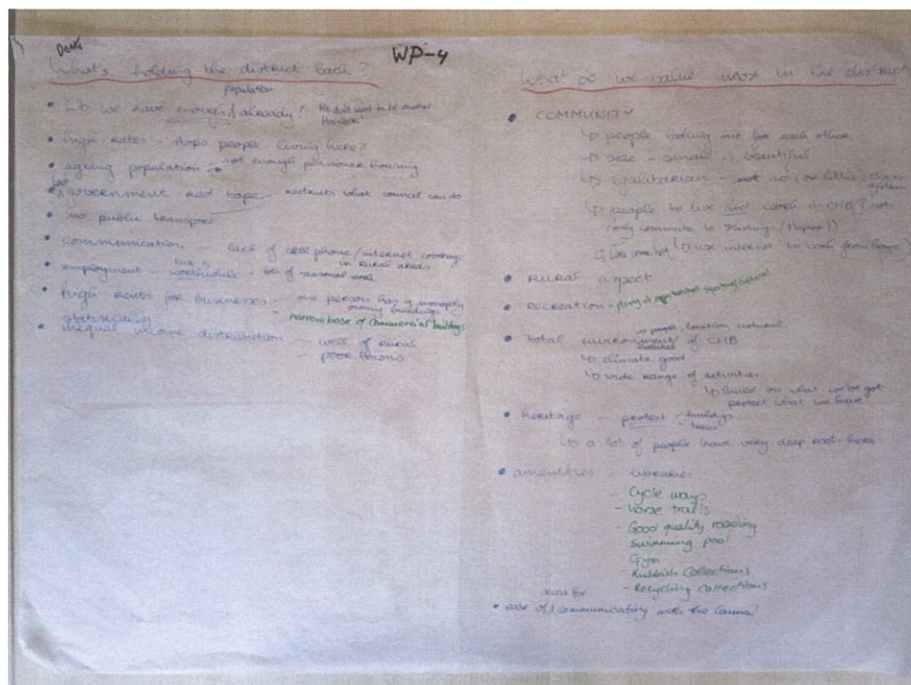 DONE
WP-4
What's holding the district back?
population
• Do we have enough already? We don't want to be another
• high rates - stops people living here?
• ageing population - not enough pensioner housing
• government red tape - restricts what council can do
• no public transport
• communication - lack of cell phone/internet coverage
in rural areas
• employment - lots of seasonal work
• high rents for businesses - one person has a monopoly
owning buildings
- narrow base of commercial buildings
• unequal income distribution - well off rural
poor towns
What do we value most in the district
• COMMUNITY
↳ people looking out for each other
↳ size - small is beautiful
↳ egalitarian - not no (or little) class
system
↳ people to live and work in CHB (not
only commute to Hastings/Napier)
↳ use internet to work from home
• rural aspect
• RECREATION -
→ people, location, natural
• total environment of CHB
↳ climate good
↳ wide range of activities
↳ build on what we've got
protect what we have
• heritage - protect - buildings
trees
↳ a lot of people have very deep roots here
• amenities - libraries
- Cycle ways
- Horse trails
- Good quality roading
Swimming pool
Gym
- Rubbish Collections
- Recycling Collections
• ease of communicating with the Council